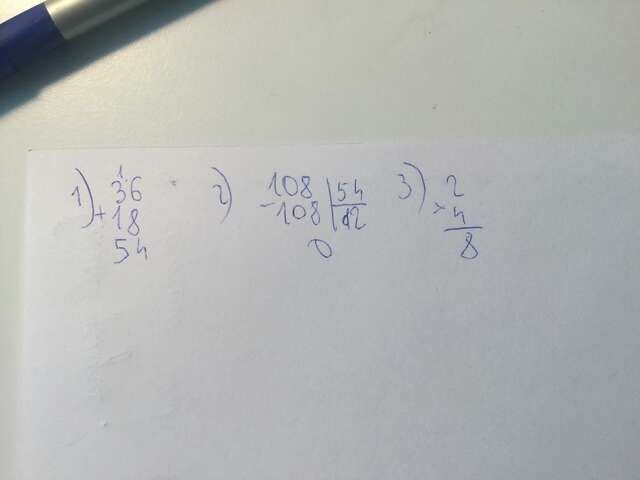 1) 36 + 18 54
2) 108 54 - 108 2 0
3) 2 × 4 8